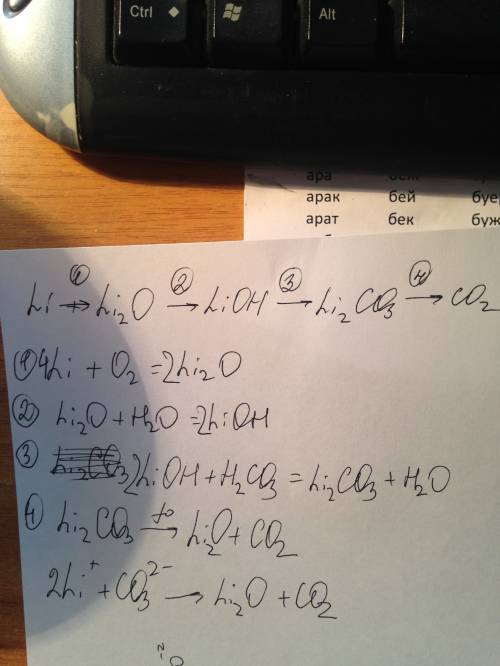 Ctrl Alt
ара
арак бей буе
арат бек буж
① ② ③ ④
Li → Li₂O → LiOH → Li₂CO₃ → CO₂
① 4Li + O₂ = 2Li₂O
② Li₂O + H₂O = 2LiOH
③ 2LiOH + H₂CO₃ = Li₂CO₃ + H₂O
4 Li₂CO₃ →(t°) Li₂O + CO₂
2Li⁺ + CO₃²⁻ → Li₂O + CO₂